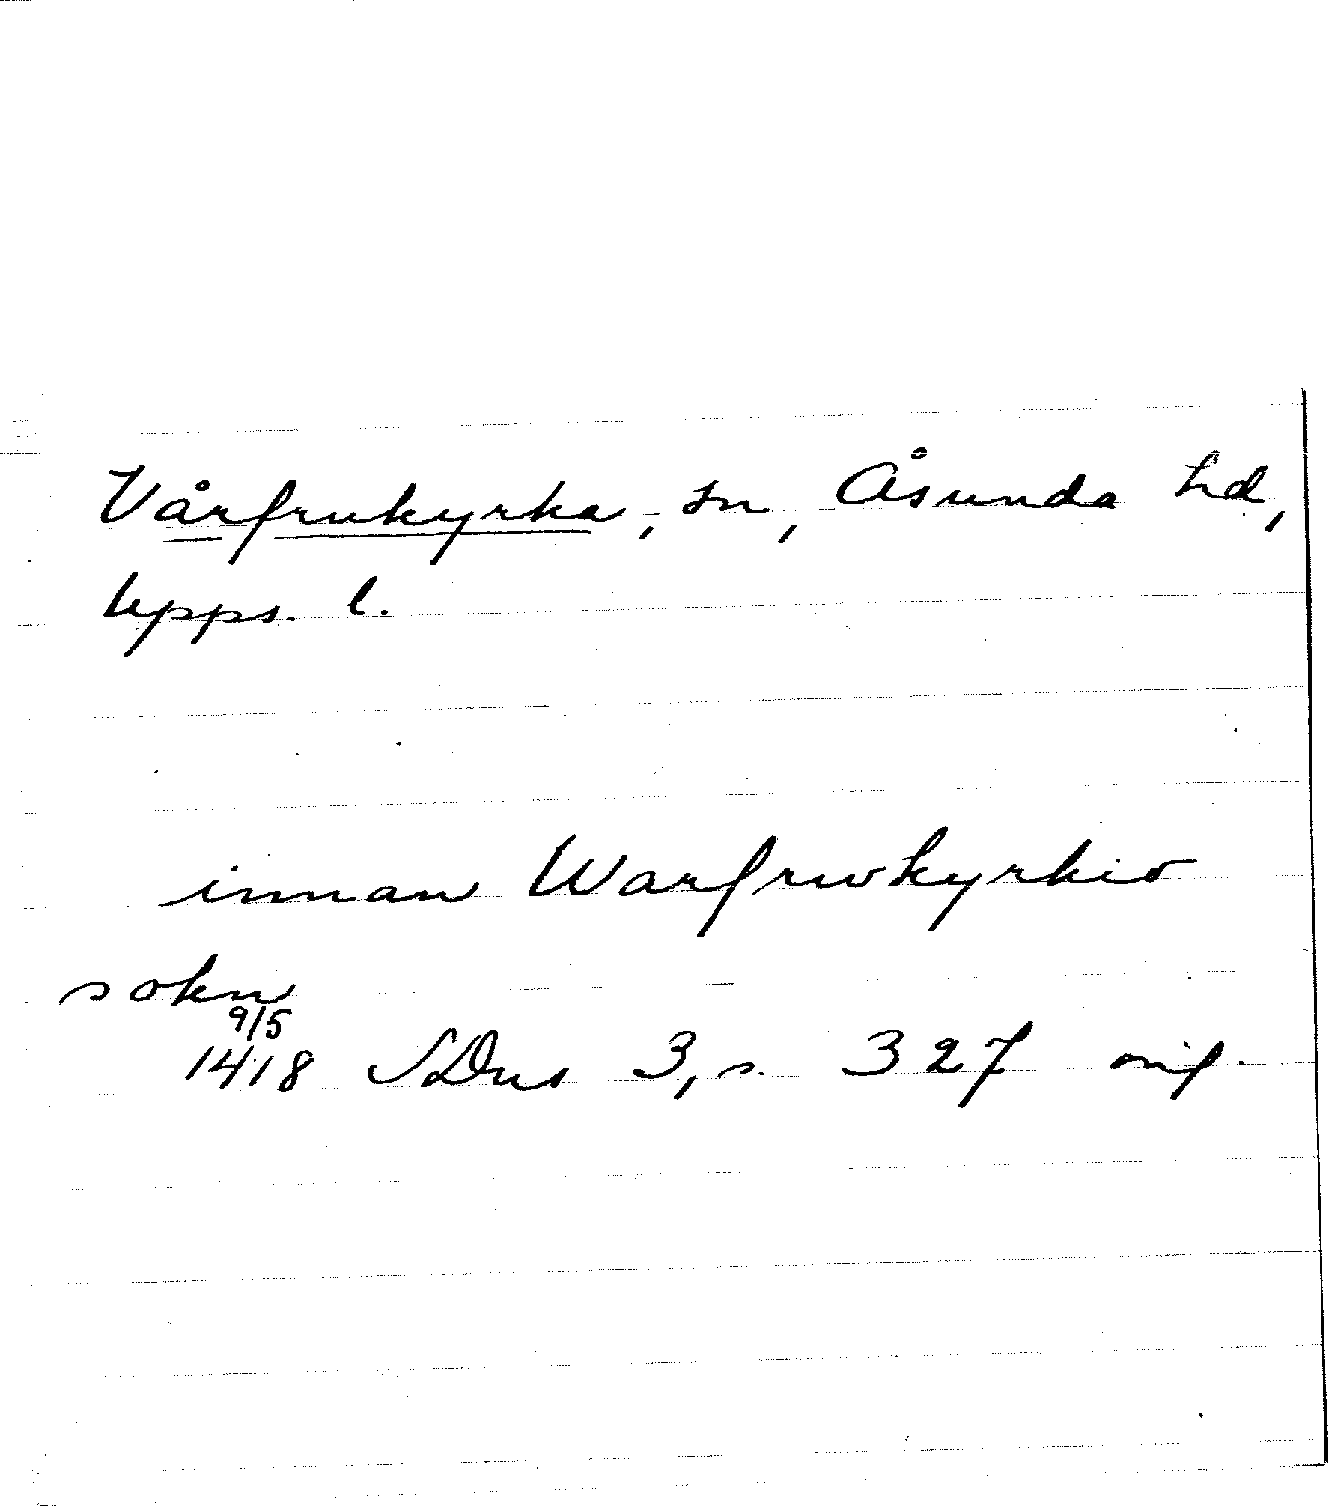 Vårfrukyrka, sn, Åsunda hd,
Upps. l.
innan Warfrwkyrkio
sokn
9/5
1418 SDns 3, s. 327 orig.